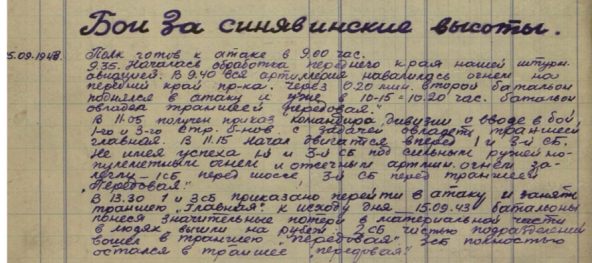 Бои за синявинские высоты.
15.09.1943. Полк готов к атаке в 9.00 час.
9.35. Началась обработка переднего края нашей штурм.
авиацией. В 9.40 вся артиллерия навалилась огнем на
передний край пр-ка. Через 0.20 мин. второй батальон
поднялся в атаку и уже в 10-15 = 10.20 час. батальон
овладел траншеей "Передовая".
В 11.05 получен приказ командира дивизии о вводе в бой
1-го и 3-го стр. б-нов с задачей овладеть траншеей
главная. В 11.15 начал двигатся вперед 1 и 3-й СБ.
Не имея успеха 1й и 3-й СБ под сильным ружейно-
пулеметным огнем и отсечным артил. огнем за-
легли - 1СБ перед шоссе, 3-й СБ перед траншеей
"Передовая".
В 13.30 1 и 3СБ приказано перейти в атаку и занять
траншею "Главная". К исходу дня 15.09.43 батальоны
понеся значительные потери в материальной части
в людях, вышли на рубеж: 2СБ частью подразделений
вошел в траншею "передовая", 3СБ полностью
остался в траншее "передовая".